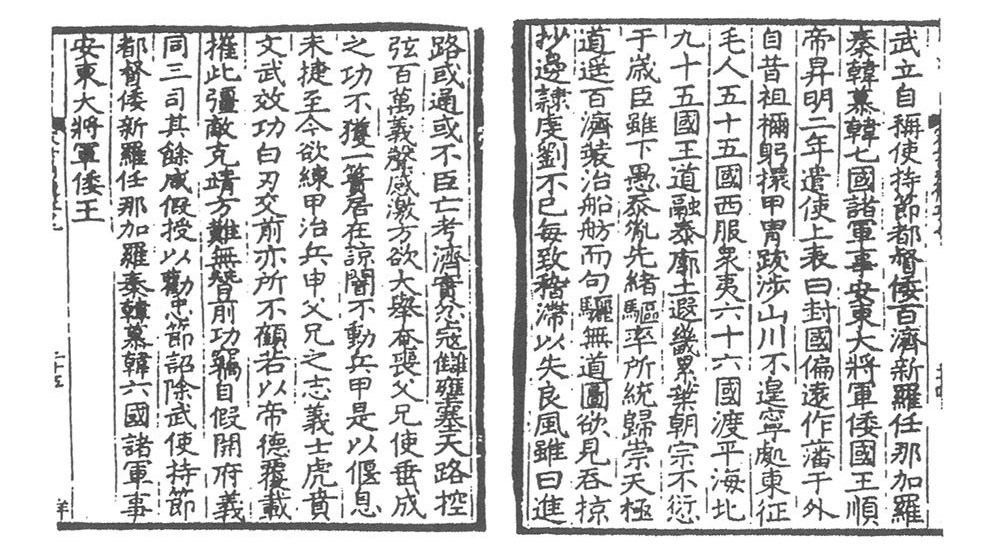 武立自稱使持節都督倭百濟新羅任那加羅
秦韓慕韓七國諸軍事安東大將軍倭國王順
帝昇明二年遣使上表曰封國偏遠作藩于外
自昔祖禰躬擐甲冑跋涉山川不遑寧處東征
毛人五十五國西服衆夷六十六國渡平海北
九十五國王道融泰廓土遐畿累葉朝宗不愆
于歲臣雖下愚忝胤先緒驅率所統歸崇天極
道遥百濟裝治船舫而句驪無道圖欲見吞掠
抄邊隸虔劉不已每致稽滯以失良風雖曰進
路或通或不臣亡考濟實忿寇讎壅塞天路控
弦百萬義聲感激方欲大舉奄喪父兄使垂成
之功不獲一簣居在諒闇不動兵甲是以偃息
未捷至今欲練甲治兵申父兄之志義士虎賁
文武效功白刃交前亦所不顧若以帝德覆載
摧此彊敵克靖方難無替前功竊自假開府義
同三司其餘咸假授以勸忠節詔除武使持節
都督倭新羅任那加羅秦韓慕韓六國諸軍事
安東大將軍倭王